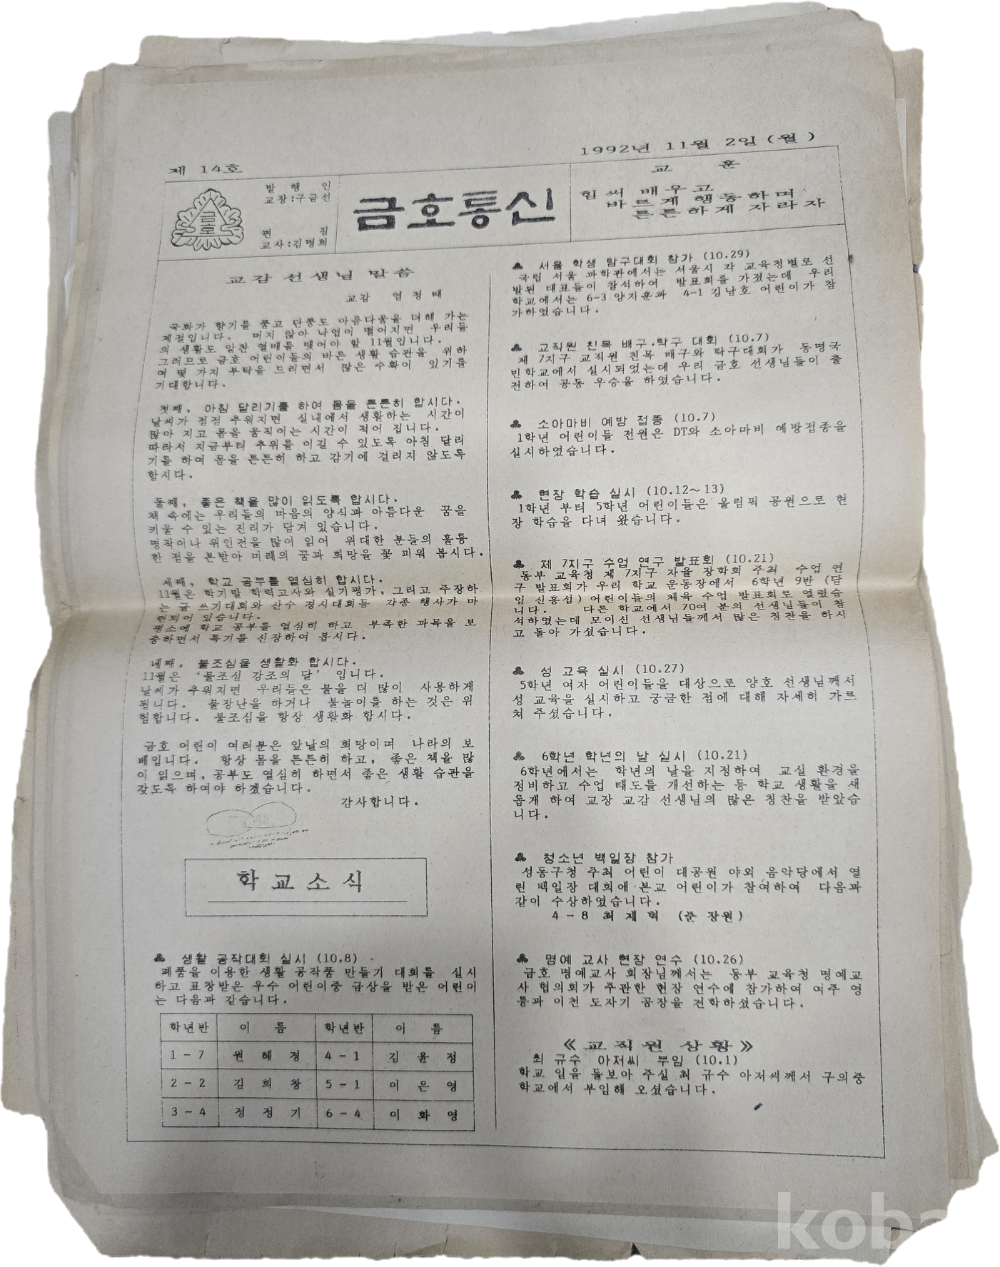 제 14호
1992년 11월 2일(월)
금호
발행인
교장:구금선
편집
교사:김명희
금호통신
교훈
힘써 배우고
바르게 행동하며
튼튼하게 자라자
교감 선생님 말씀
교감 엄정태
국화가 향기를 품고 단풍도 아름다움을 더해 가는
계절입니다. 머지 않아 낙엽이 떨어지면 우리들
의 생활도 알찬 열매를 맺어야 할 11월입니다.
그러므로 금호 어린이들의 바른 생활 습관을 위하
여 몇 가지 부탁을 드리면서 많은 수확이 있기를
기대합니다.
첫째, 아침 달리기를 하여 몸을 튼튼히 합시다.
날씨가 점점 추워지면 실내에서 생활하는 시간이
많아 지고 몸을 움직이는 시간이 적어 집니다.
따라서 지금부터 추위를 이길 수 있도록 아침 달리
기를 하여 몸을 튼튼히 하고 감기에 걸리지 않도록
합시다.
둘째, 좋은 책을 많이 읽도록 합시다.
책 속에는 우리들의 마음의 양식과 아름다운 꿈을
키울 수 있는 진리가 담겨 있습니다.
명작이나 위인전을 많이 읽어 위대한 분들의 훌륭
한 점을 본받아 미래의 꿈과 희망을 꽃 피워 봅시다.
세째, 학교 공부를 열심히 합시다.
11월은 학기말 학력고사와 실기평가, 그리고 주장하
는 글 쓰기대회와 산수 경시대회등 각종 행사가 마
련되어 있습니다.
평소에 학교 공부를 열심히 하고 부족한 과목을 보
충하면서 특기를 신장하여 봅시다.
네째, 불조심을 생활화 합시다.
11월은 '불조심 강조의 달' 입니다.
날씨가 추워지면 우리들은 불을 더 많이 사용하게
됩니다. 불장난을 하거나 불놀이를 하는 것은 위
험합니다. 불조심을 항상 생활화 합시다.
금호 어린이 여러분은 앞날의 희망이며 나라의 보
배입니다. 항상 몸을 튼튼히 하고, 좋은 책을 많
이 읽으며, 공부도 열심히 하면서 좋은 생활 습관을
갖도록 하여야 하겠습니다.
감사합니다.
학교소식
♣ 생활 공작대회 실시 (10.8)
폐품을 이용한 생활 공작품 만들기 대회를 실시
하고 표창받은 우수 어린이중 금상을 받은 어린이
는 다음과 같습니다.
학년반 이름 학년반 이름
1-7 원혜경 4-1 김윤정
2-2 김희창 5-1 이은영
3-4 정정기 6-4 이화영
♣ 서울 학생 탐구대회 참가 (10.29)
국립 서울 과학관에서는 서울시 각 교육청별로 선
발된 대표들이 참석하여 발표회를 가졌는데 우리
학교에서는 6-3 양지훈과 4-1 김남호 어린이가 참
가하였습니다.
♣ 교직원 친목 배구·탁구 대회 (10.7)
제 7지구 교직원 친목 배구와 탁구대회가 동명국
민학교에서 실시되었는데 우리 금호 선생님들이 출
전하여 공동 우승을 하였습니다.
♣ 소아마비 예방 접종 (10.7)
1학년 어린이들 전원은 DT와 소아마비 예방접종을
실시하였습니다.
♣ 현장 학습 실시 (10.12~13)
1학년 부터 5학년 어린이들은 올림픽 공원으로 현
장 학습을 다녀 왔습니다.
♣ 제 7지구 수업 연구 발표회 (10.21)
동부 교육청 제 7지구 자율 장학회 주최 수업 연
구 발표회가 우리 학교 운동장에서 6학년 9반 (담
임 신홍섭) 어린이들의 체육 수업 발표회도 열렸습
니다. 다른 학교에서 70여 분의 선생님들이 참
석하였는데 모이신 선생님들께서 많은 칭찬을 하시
고 돌아 가셨습니다.
♣ 성 교육 실시 (10.27)
5학년 여자 어린이들을 대상으로 양호 선생님께서
성 교육을 실시하고 궁금한 점에 대해 자세히 가르
쳐 주셨습니다.
♣ 6학년 학년의 날 실시 (10.21)
6학년에서는 학년의 날을 지정하여 교실 환경을
정비하고 수업 태도를 개선하는 등 학교 생활을 새
롭게 하여 교장 교감 선생님의 많은 칭찬을 받았습
니다.
♣ 청소년 백일장 참가
성동구청 주최 어린이 대공원 야외 음악당에서 열
린 백일장 대회에 본교 어린이가 참여하여 다음과
같이 수상하였습니다.
4-8 최재혁 (준 장원)
♣ 명예 교사 현장 연수 (10.26)
금호 명예교사 회장님께서는 동부 교육청 명예교
사 협의회가 주관한 현장 연수에 참가하여 여주 영
릉과 이천 도자기 공장을 견학하셨습니다.
《교직원 상황》
최 규수 아저씨 부임 (10.1)
학교 일을 돌보아 주실 최 규수 아저씨께서 구의중
학교에서 부임해 오셨습니다.